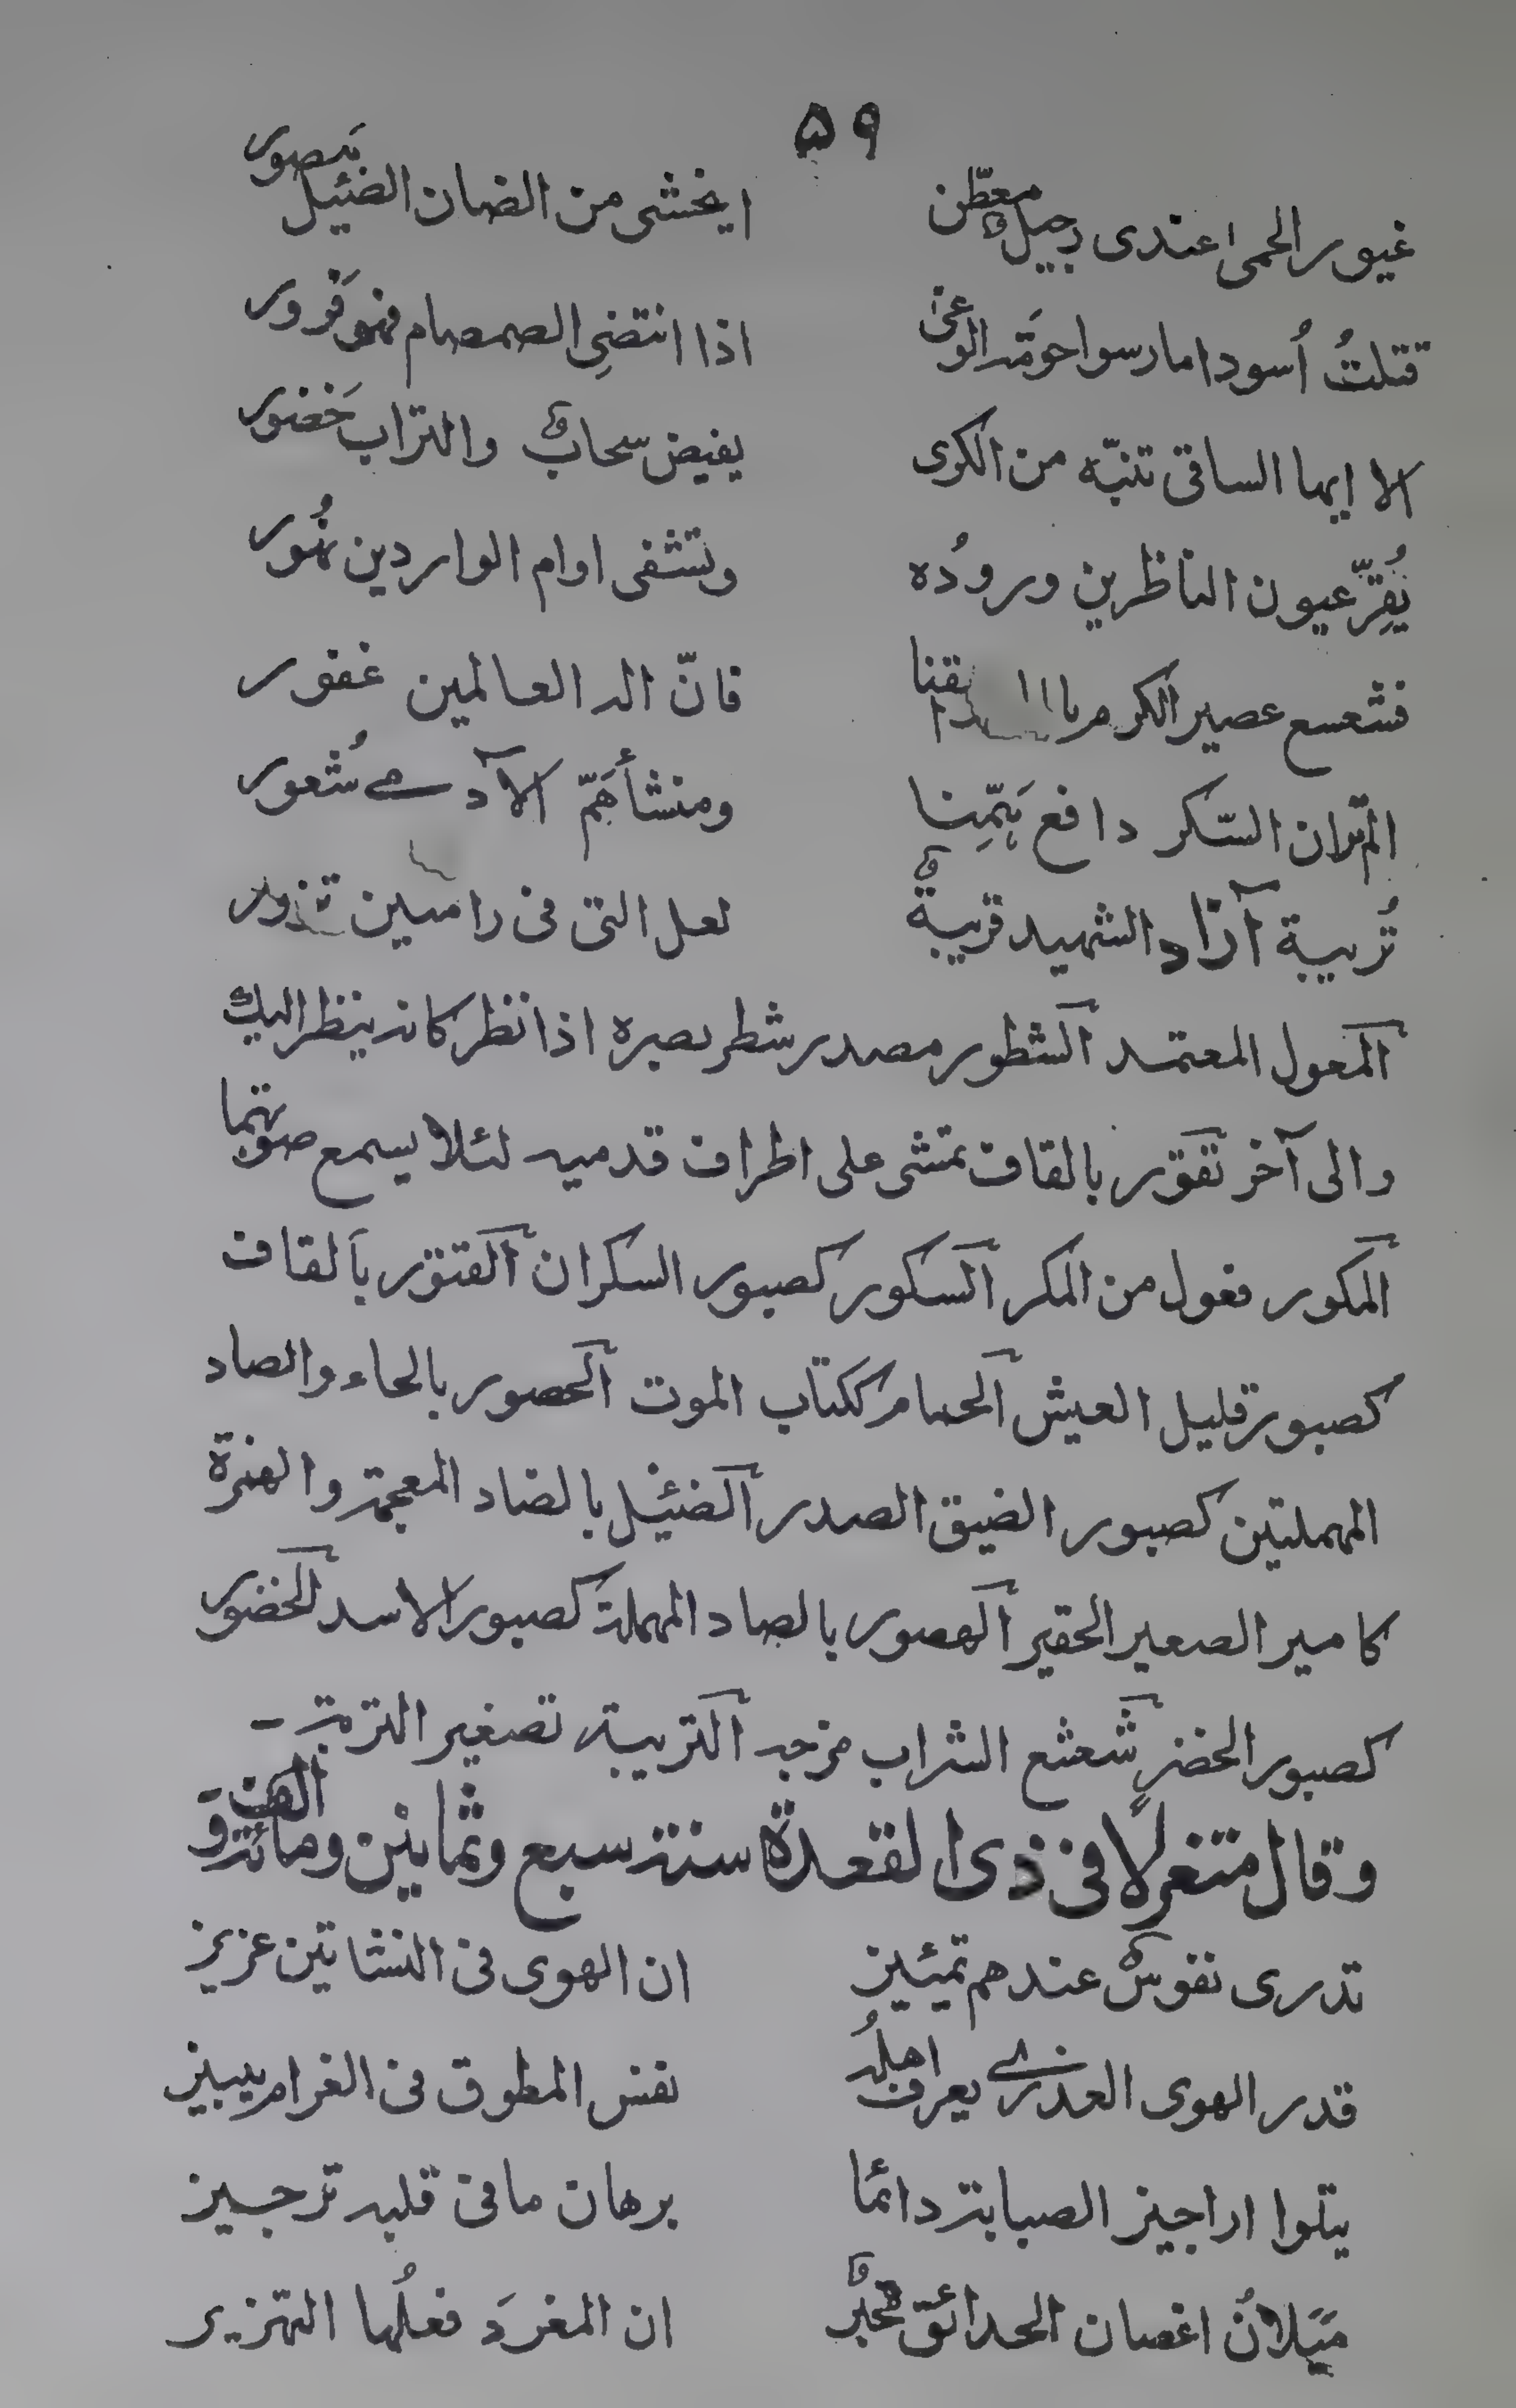 ٥٩
غيور الحمى عندى رجيل معطّن ايخشى من الضان الضئيل هَصور
قتلتُ اُسودا مارسوا حومَة الوغى اذا انتضى الصمصام فهو قَرور
الا ايها الساقى تنبّه من الكرى يفيض سحابٌ والتراب خَضور
يُقِرّ عيون الناظرين ورودُه وتشفى اوام الواردين نُهور
فشعسع عصير الكرم فان اله العالمين غفور
الم تر ان السّكر دافع هَمِّنا ومنشأ هَمّ الآدمے شُعور
تُريبة آزاد الشهيد قريبةٌ لعل التى فى رامسين تزور
المعول المعتمد الشطور مصدر شطر بصره اذا نظر كانه ينظر اليك
والى آخر تقوّر بالقاف تمشى على اطراف قدميه لئلا يسمع صوتهما
المكور فعول من المكر السكور كصبور السكران القتور بالقاف
كصبور قليل العيش الحمام ككتاب الموت الحصور بالحاء والصاد
المهملتين كصبور الضيق الصدر الضئيل بالضاد المعجمة والهمزة
كامير الصغير الحقير الهصور بالصاد المهملة كصبور الاسد الخضور
كصبور الخضر شعشع الشراب مزجه التريبة تصغير التربة -
وقال متغزلًا فى ذى القعدة سنة سبع وثمانين ومائة والف -
تدرى نفوسٌ عندهم تمييز ان الهوى فى النشاتين عزيز
قدر الهوى العذرے يعرف اهلُه نفس المطوق فى الغرام يبيز
يتلوا اراجيز الصبابة دائما برهان ما فى قلبه ترجيز
مَيَلانُ اغصان الحدائق مخبرٌ ان المغرد فعلُها التهزيز